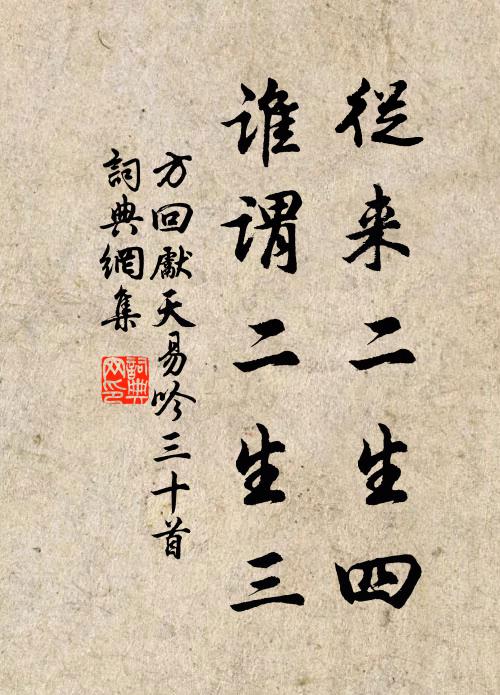 從来二生四
谁謂二生三
方回獻天易吟三十首
詞典網集
詞典网印